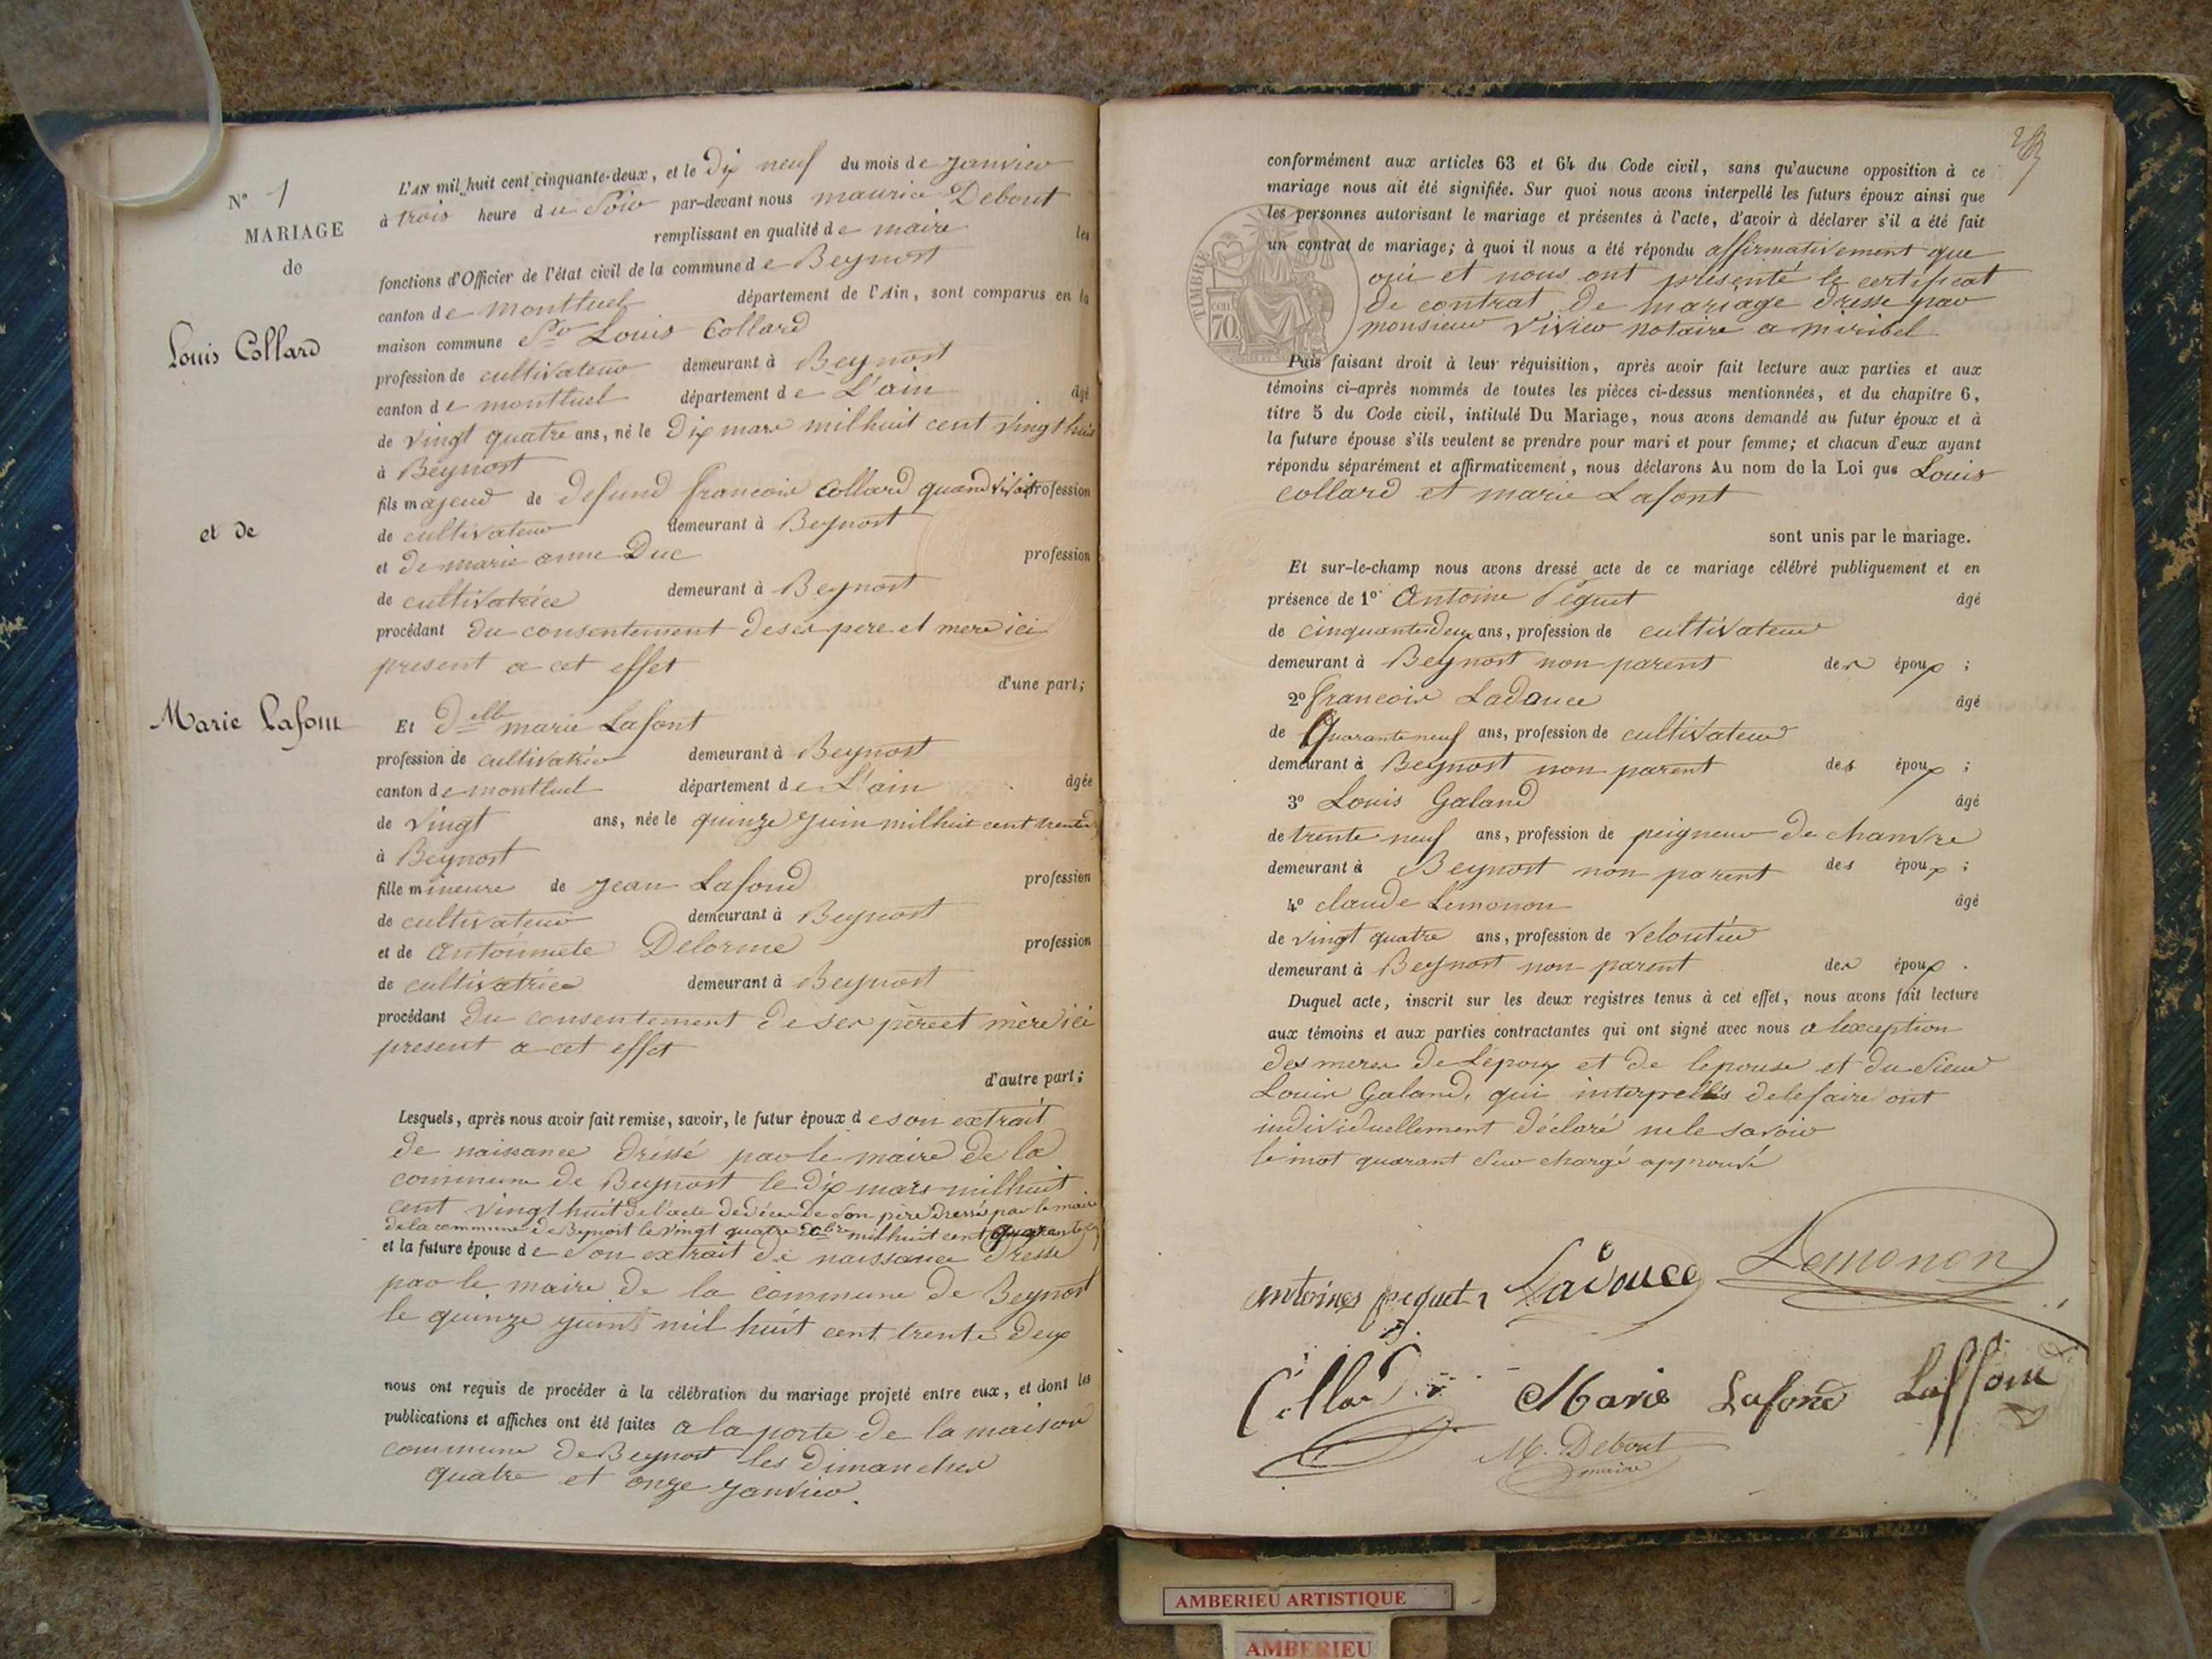 N° 1
MARIAGE
de
Louis Collard
et de
Marie Lafont
L'AN mil huit cent cinquante-deux, et le Dix neuf du mois de janvier
à trois heure du Soir par-devant nous maurice Debout
remplissant en qualité de maire les
fonctions d'Officier de l'état civil de la commune de Beynost
canton de montluel département de l'Ain, sont comparus en la
maison commune Sr Louis Collard
profession de cultivateur demeurant à Beynost
canton de montluel département de L'ain âgé
de vingt quatre ans, né le Dix mars mil huit cent vingt huit
à Beynost
fils majeur de defund francois Collard quand vivait profession
de cultivateur demeurant à Beynost
et de marie anne Duc profession
de cultivatrice demeurant à Beynost
procédant du consentement de ses pere et mere ici
present a cet effet
d'une part;
Et delle marie Lafont
profession de cultivatrice demeurant à Beynost
canton de montluel département de L'ain âgée
de vingt ans, née le quinze juin mil huit cent trente
à Beynost
fille mineure de jean Lafond profession
de cultivateur demeurant à Beynost
et de antoinnete Delorme profession
de cultivatrice demeurant à Beynost
procédant du consentement de ses père et mère ici
present a cet effet
d'autre part;
Lesquels, après nous avoir fait remise, savoir, le futur époux de son extrait
de naissance dréssé par le maire de la
commune de Beynost le dix mars mil huit
cent vingt huit de l'acte de décé de son père dressé par le maire
de la commune de Beynost le vingt quatre 8bre mil huit cent quarante
et la future épouse de son extrait de naissance dressé
par le maire de la commune de Beynost
le quinze juin mil huit cent trente deux
nous ont requis de procéder à la célébration du mariage projeté entre eux, et dont les
publications et affiches ont été faites a la porte de la maison
commune de Beynost les dimanches
quatre et onze janvier.
conformément aux articles 63 et 64 du Code civil, sans qu'aucune opposition à ce
mariage nous ait été signifiée. Sur quoi nous avons interpellé les futurs époux ainsi que
les personnes autorisant le mariage et présentes à l'acte, d'avoir à déclarer s'il a été fait
un contrat de mariage; à quoi il nous a été répondu affirmativement que
oui et nous ont présenté le certificat
de contrat de mariage dressé par
monsieur vivier notaire a miribel
TIMBRE
cen
70
Puis faisant droit à leur réquisition, après avoir fait lecture aux parties et aux
témoins ci-après nommés de toutes les pièces ci-dessus mentionnées, et du chapitre 6,
titre 5 du Code civil, intitulé Du Mariage, nous avons demandé au futur époux et à
la future épouse s'ils veulent se prendre pour mari et pour femme; et chacun d'eux ayant
répondu séparément et affirmativement, nous déclarons Au nom de la Loi que Louis
collard et marie Lafont
sont unis par le mariage.
Et sur-le-champ nous avons dressé acte de ce mariage célébré publiquement et en
présence de 1° Antoine Peguet âgé
de cinquante deux ans, profession de cultivateur
demeurant à Beynost non parent des époux ;
2° francois Ladouce âgé
de Quarante neuf ans, profession de cultivateur
demeurant à Beynost non parent des époux ;
3° Louis Galand âgé
de trente neuf ans, profession de peigneur de chanvre
demeurant à Beynost non parent des époux ;
4° claude Lemonon âgé
de vingt quatre ans, profession de veloutier
demeurant à Beynost non parent des époux .
Duquel acte, inscrit sur les deux registres tenus à cet effet, nous avons fait lecture
aux témoins et aux parties contractantes qui ont signé avec nous a lexception
des meres de Lépoux et de lepouse et du Sieur
Louis Galand, qui interpellés de le faire ont
individuellement déclaré ne le savoir
le mot quarant Sur chargé approuvé
antoines peguet Ladouce Lemonon
Collard Marie Lafond Laffond
M. Debout
maire
AMBERIEU ARTISTIQUE
AMBERIEU